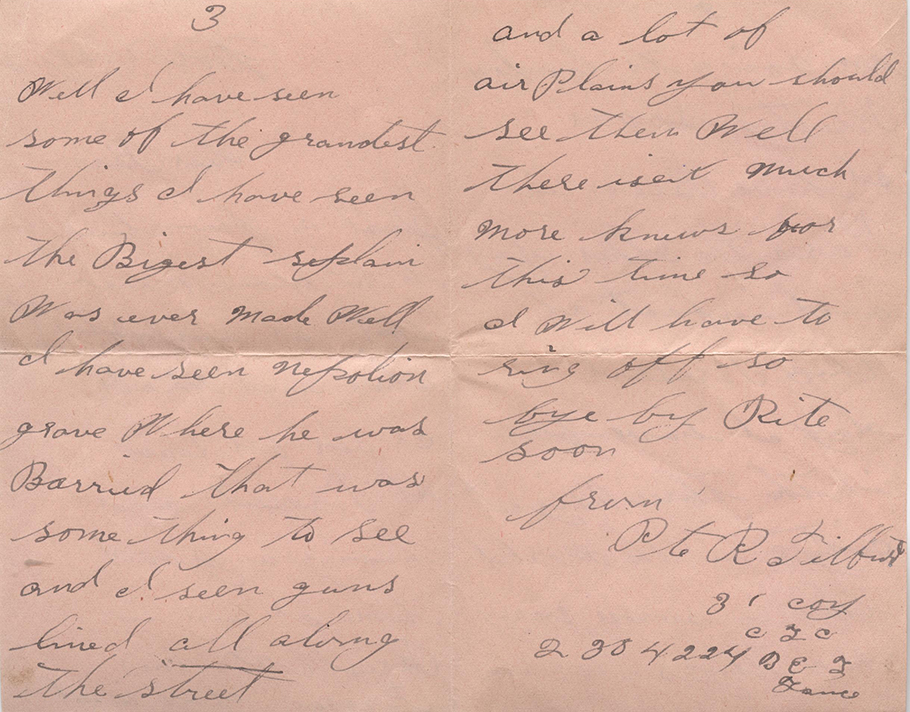 3
Well I have seen
some of the grandest
things I have seen
the Bigest
Was ever made Well
I have seen Nepolion
grave Where he was
Barried that was
some thing to see
and I seen guns
lined all along
the street
and a lot of
air Plains you should
see them Well
there isent much
more knews for
this time so
I Will have to
ring off so
bye by Rite
soon
from
Pte R Tilbury
31 coy
C F C
2304224 B E F
France